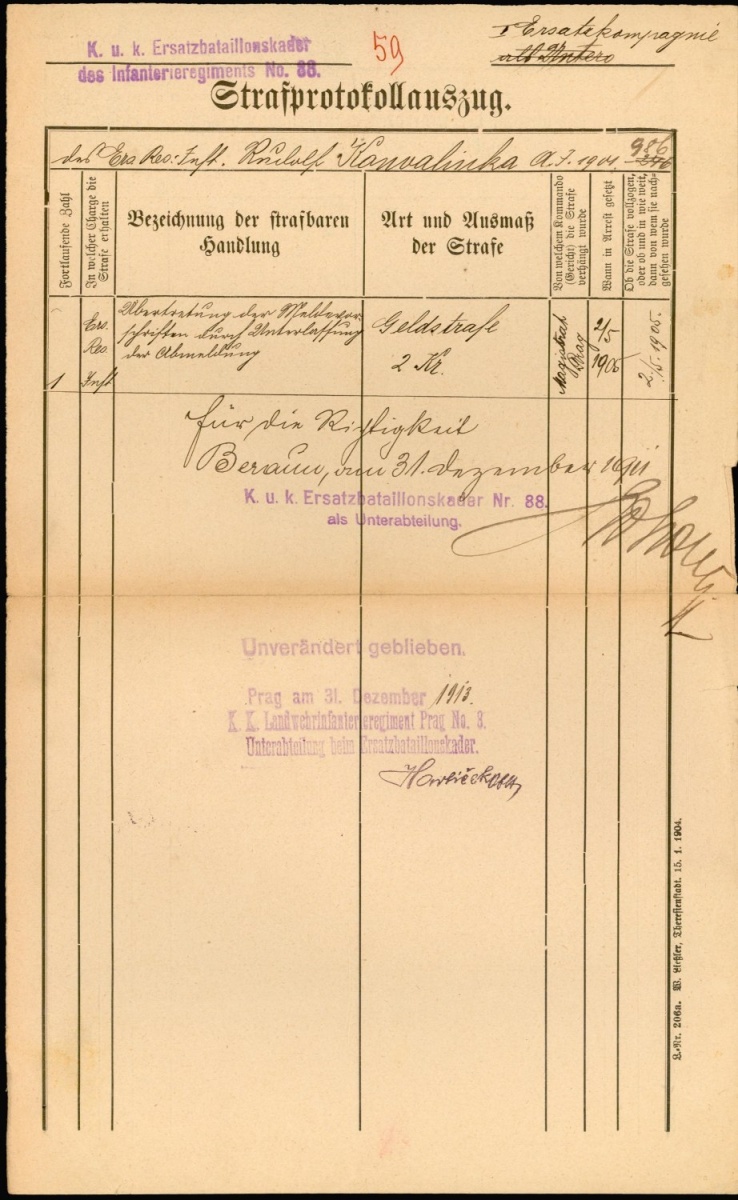 K. u. k. Ersatzbataillonskader
des Infanterieregiments No. 88.
59
Ersatzkompagnie
Strafprotokollauszug.
des Ers Res: Inft. Rudolf Konvalinka A. J. 1901 986
Fortlaufende Zahl
In welcher Charge die
Strafe erhalten
Bezeichnung der strafbaren
Handlung
Art und Ausmaß
der Strafe
Von welchem Kommando
(Gericht) die Strafe
verhängt wurde
Wann in Arrest gesetzt
Ob die Strafe vollzogen,
oder ob und in wie weit,
dann von wem sie nach-
gesehen wurde
1
Ers.
Res.
Inft
Übertretung der Meldevor-
schriften durch Unterlassung
der Abmeldung
Geldstrafe
2 Kr.
Magistrat
Prag
2/5
1905
2/5. 1905.
Für die Richtigkeit
Beraun, am 31. Dezember 1911
K. u. k. Ersatzbataillonskader Nr. 88.
als Unterabteilung.
Unverändert geblieben.
Prag am 31. Dezember 1913.
K. K. Landwehrinfanterieregiment Prag No. 8.
Unterabteilung beim Ersatzbataillonskader.
L.-Nr. 206a. W. Liessler, Theresienstadt. 15. 1. 1904.